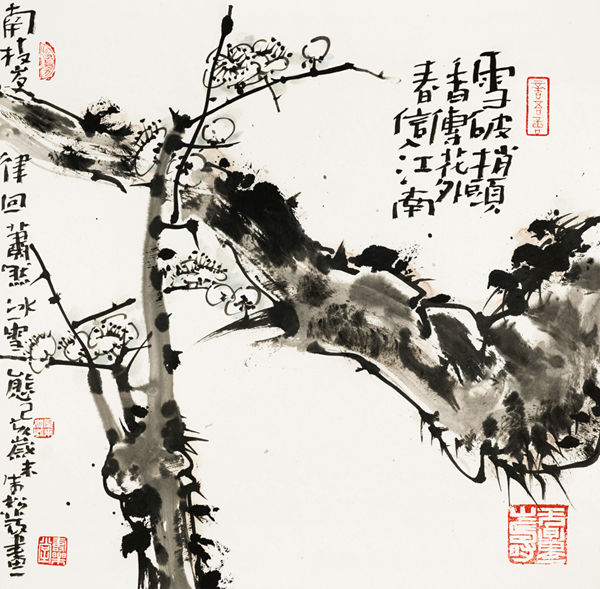 雪破梢頭
香傳花外
春信入江南
南枝 律回蕭 冰雪態己亥歲末朱松發畫